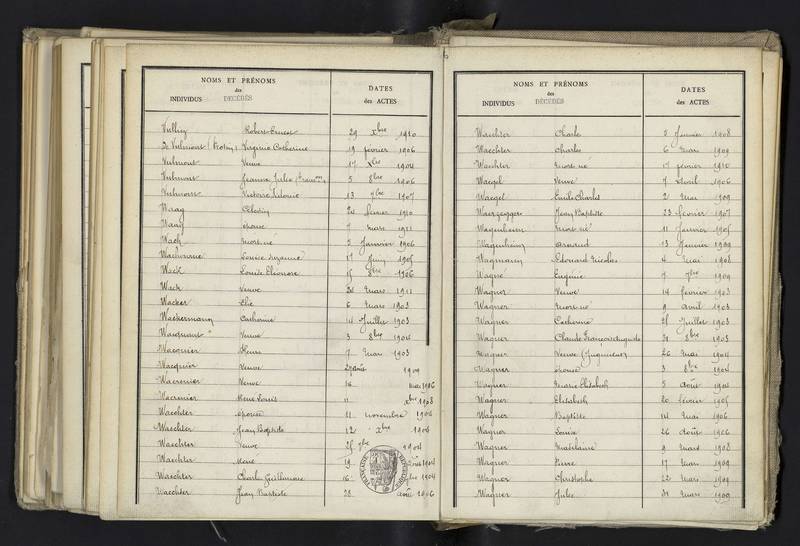 NOMS ET PRÉNOMS
des
INDIVIDUS DÉCÉDÉS
DATES
des ACTES
Vulliez Robert Ernest 29 Xbre 1910
De Vulmont Virginie Catherine 19 février 1906
Vulmont Veuve 17 Xbre 1904
Vulmont Jeanne Julie 5 8bre 1906
Vulmont Victoire Sidonie 13 7bre 1907
Waag Célestin 24 février 1910
Waag épouse 7 mars 1911
Wach mort-né 2 Janvier 1906
Louise Suzanne 17 Juin 1905
Wack Louise Eléonore 15 8bre 1906
Wack Veuve 21 Mars 1911
Wacker Elie 6 Mars 1903
Wackermann Catherine 14 Juillet 1903
Veuve 3 8bre 1904
Wacquier Henri 7 Mai 1903
Wacquier Veuve 1904
Wacrenier Veuve 16 Mai 1906
Wacrenier Louis 11 Xbre 1908
Waechter épouse 11 novembre 1904
Waechter Jean Baptiste 12 Xbre 1904
Waechter Veuve 1904
Waechter 1904
Waechter Charles Guillaume 16 1904
Waechter Jean Baptiste 28 août 1906
NOMS ET PRÉNOMS
des
INDIVIDUS DÉCÉDÉS
DATES
des ACTES
Waechter Charles 2 Janvier 1908
Waechter Charles 6 Mai 1909
Waechter mort-né 17 février 1910
Waegel Veuve 7 Avril 1906
Waegel Emile Charles 2 Mai 1909
Jean Baptiste 23 février 1907
Wagenheim mort-né 11 Janvier 1905
Wagenheim Armand 13 Janvier 1909
Wagmann Edouard Nicolas 4 Mai 1908
Wagné Eugénie 7 7bre 1909
Wagner Veuve 14 février 1903
Wagner mort-né 9 avril 1903
Wagner Catherine 25 Juillet 1903
Wagner Claude François Auguste 31 8bre 1903
Wagner Veuve 26 Mai 1904
Wagner épouse 3 8bre 1904
Wagner Marie Elisabeth 5 Août 1904
Wagner Elisabeth 20 février 1905
Wagner Baptiste 14 Mai 1906
Wagner Louise 26 Août 1906
Wagner Madeleine 9 Mars 1908
Wagner Pierre 17 Mars 1909
Wagner Christophe 22 Mai 1909
Wagner Jules 31 Mars 1909